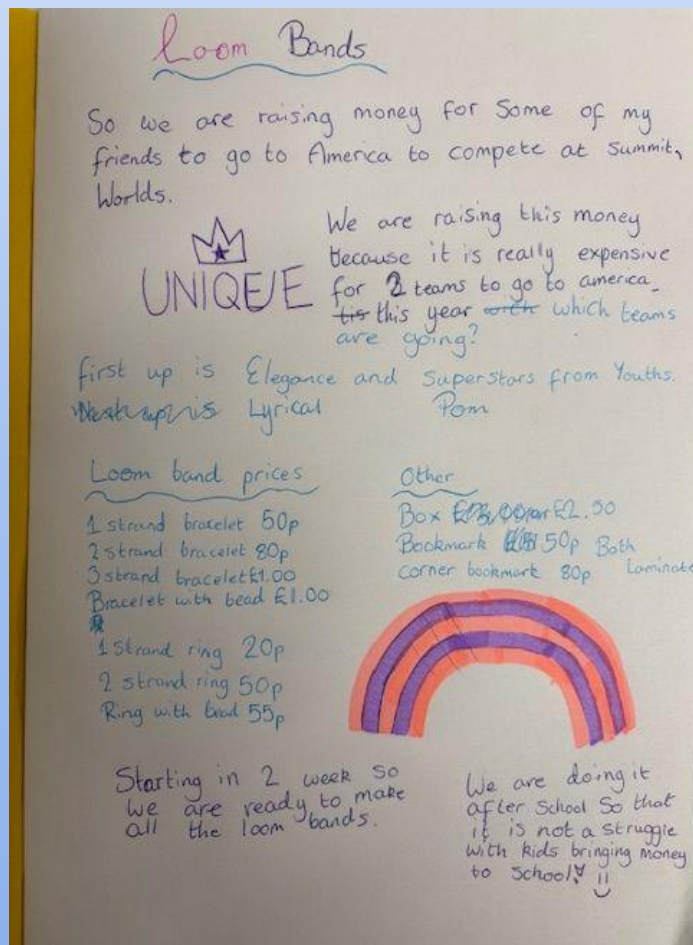 Loom Bands
So we are raising money for Some of my
friends to go to America to compete at Summit,
Worlds.
UNIQEUE
We are raising this money
because it is really expensive
for 2 teams to go to america
tis this year wich which teams
are going?
first up is Elegance and Superstars from Youths.
Lyrical Pom
Loom band prices
1 strand bracelet 50p
2 strand bracelet 80p
3 strand bracelet £1.00
Bracelet with bead £1.00
1 strand ring 20p
2 strand ring 50p
Ring with bead 55p
Other
Box £2.50
Bookmark 50p Both
corner bookmark 80p Laminate
Starting in 2 week so
we are ready to make
all the loom bands.
We are doing it
after School So that
it is not a struggle
with kids bringing money
to School!